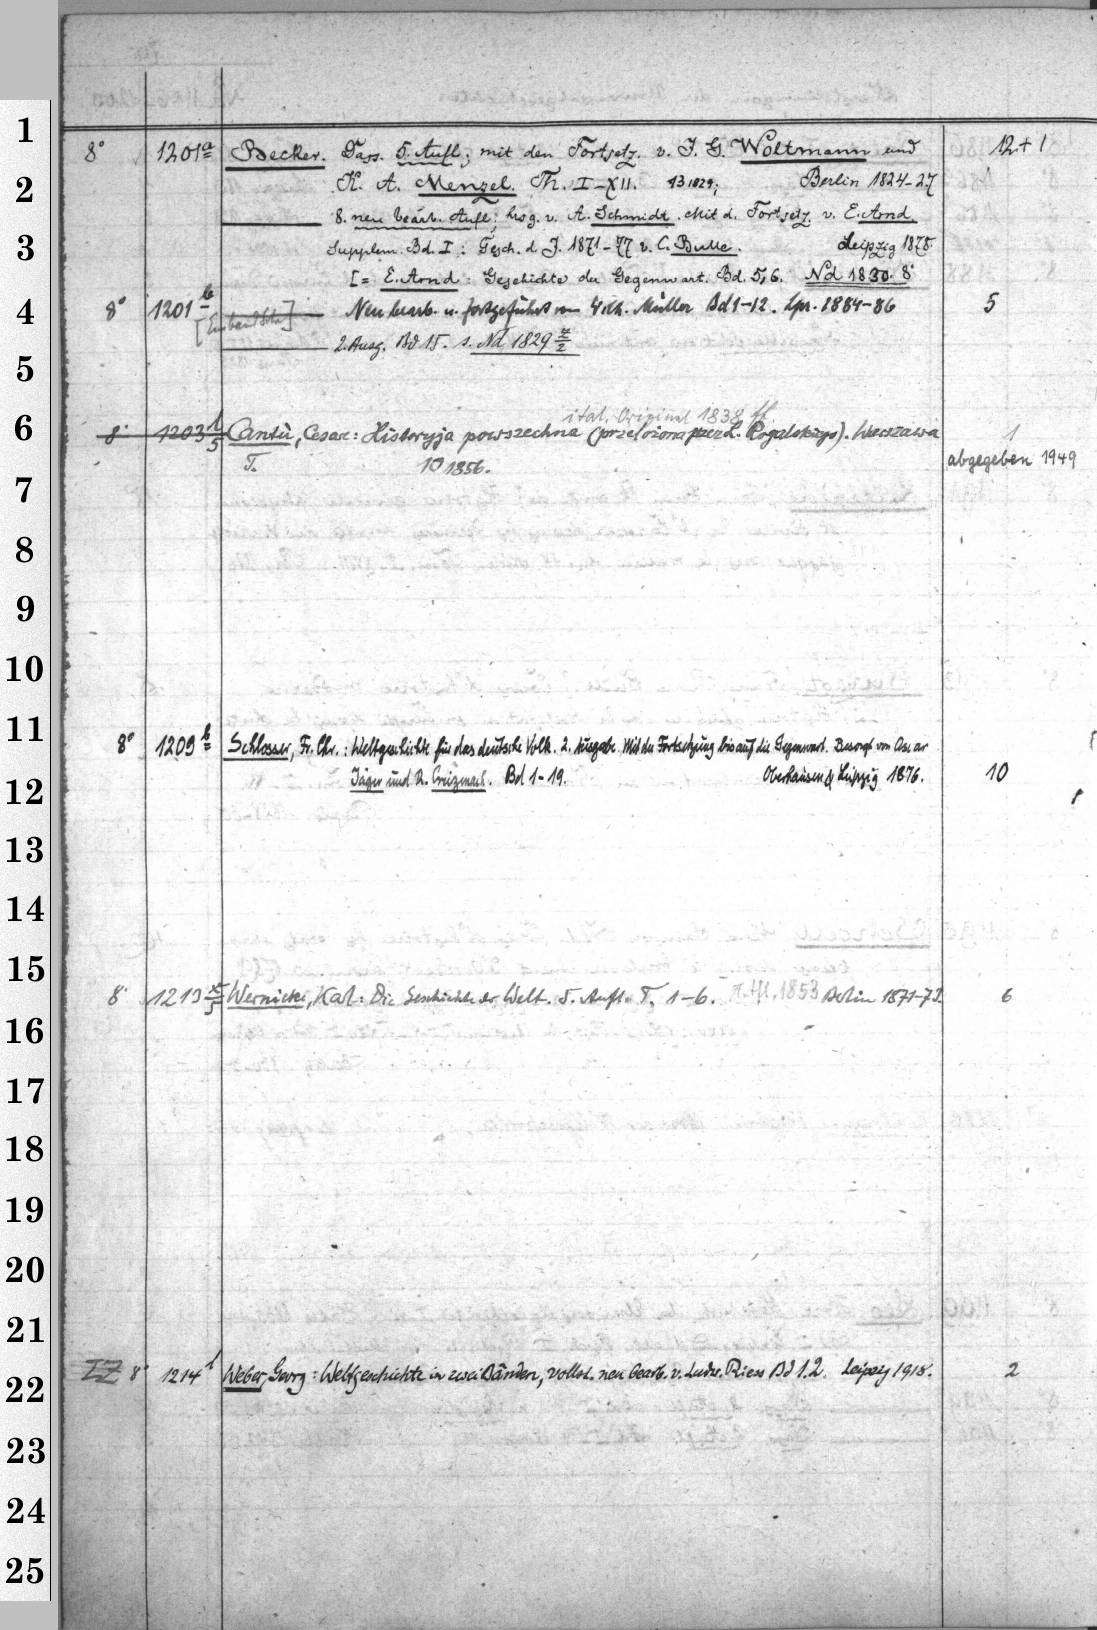 1
8° 1201a Becker. Dass. 5. Aufl.; mit den Fortsetz. v. J. G. Woltmann und 12 + 1
2
K. A. Menzel. Th. I–XII. 131029; Berlin 1824–27
8. neu bearb. Aufl; hrsg. v. A. Schmidt. Mit d. Fortsetz. v. E. Arnd.
3
Supplem. Bd. I: Gesch. d. J. 1871–77 v. C. Bulle. Leipzig 1878.
[= E. Arnd: Geschichte der Gegenwart. Bd. 5,6. Nd 1830. 8°
4
8° 1201b Neu bearb. u. fortgeführt von Wilh. Müller Bd 1–12. Lpz. 1884–86 5
2. Ausg. Bd 15. s. Nd 1829 z/2
5
ital. Original 1838 ff
6
8° 1203 1/5 Cantù, Cesar: Historyja powszechna (przełożona przez L. Rogalskiego). Warszawa 1
T. 10 1856. abgegeben 1949
7
8
9
10
11
8° 1209b Schlosser, Fr. Chr.: Weltgeschichte für das deutsche Volk. 2. Ausgabe. Mit der Fortsetzung bis auf die Gegenwart. Besorgt von Oscar
Jäger und Th. Creizenach. Bd 1–19. Oberhausen & Leipzig 1876. 10
12
13
14
15
8° 1213 x/5 Wernicke, Karl: Die Geschichte der Welt. 5. Aufl. T. 1–6. 1. Afl. 1853 Berlin 1871–72. 6
16
17
18
19
20
21
IZ 8° 1214 Weber, Georg: Weltgeschichte in zwei Bänden, vollst. neu bearb. v. Ludw. Riess Bd 1.2. Leipzig 1918. 2
22
23
24
25